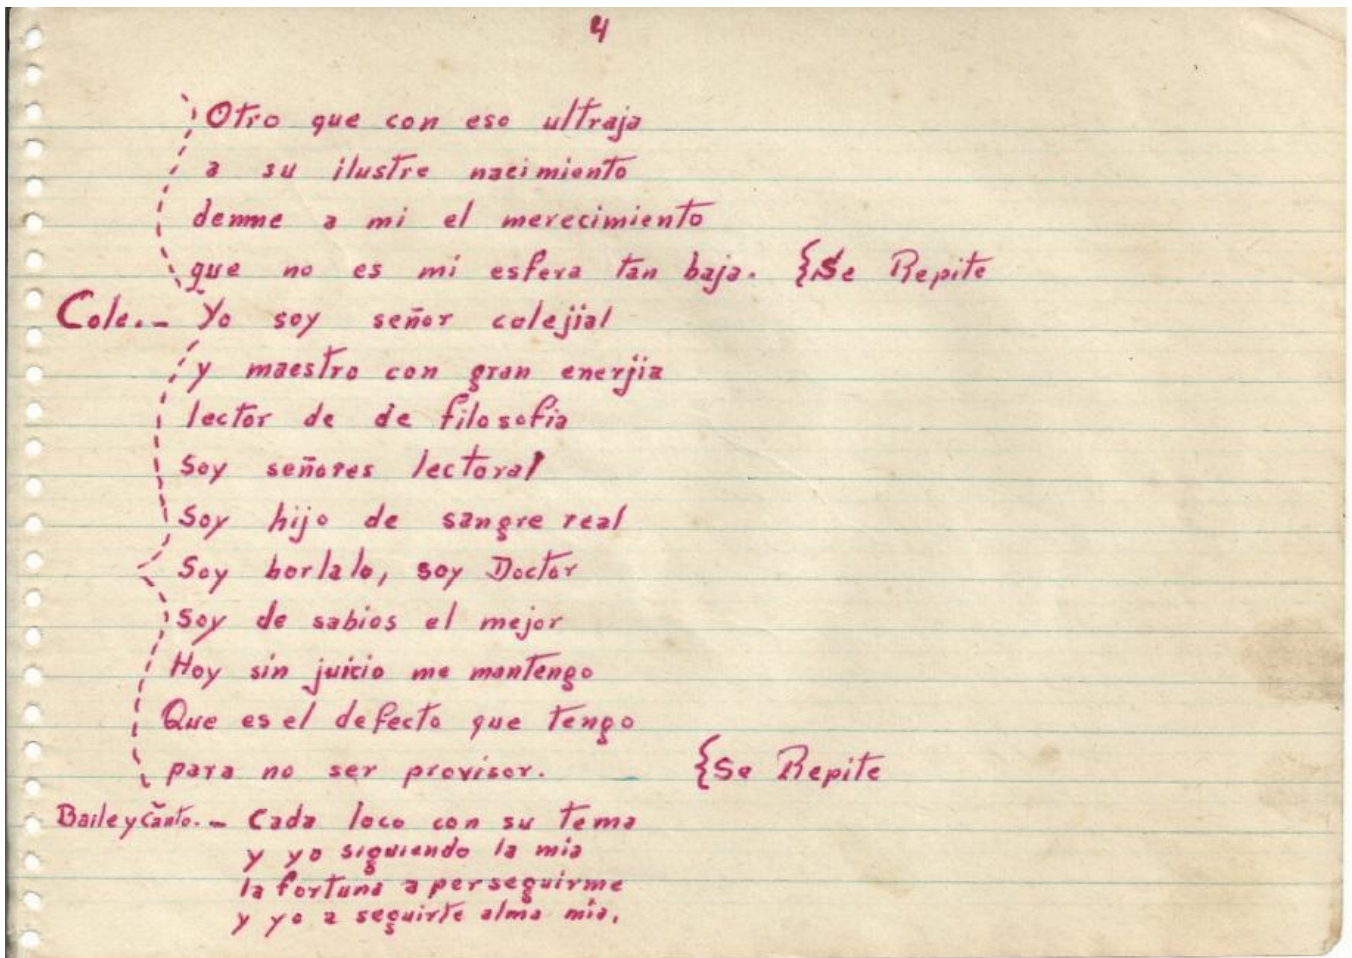 4
Otro que con eso ultraja
a su ilustre nacimiento
denme a mi el merecimiento
que no es mi esfera tan baja. {Se Repite
Cole.- Yo soy señor colejial
y maestro con gran enerjia
lector de de filosofia
Soy señores lectoral
Soy hijo de sangre real
Soy borlalo, soy Doctor
Soy de sabios el mejor
Hoy sin juicio me mantengo
Que es el defecto que tengo
para no ser provisor. {Se Repite
Baile y Canto.- Cada loco con su tema
y yo siguiendo la mia
la fortuna a perseguirme
y yo a seguirte alma mia.